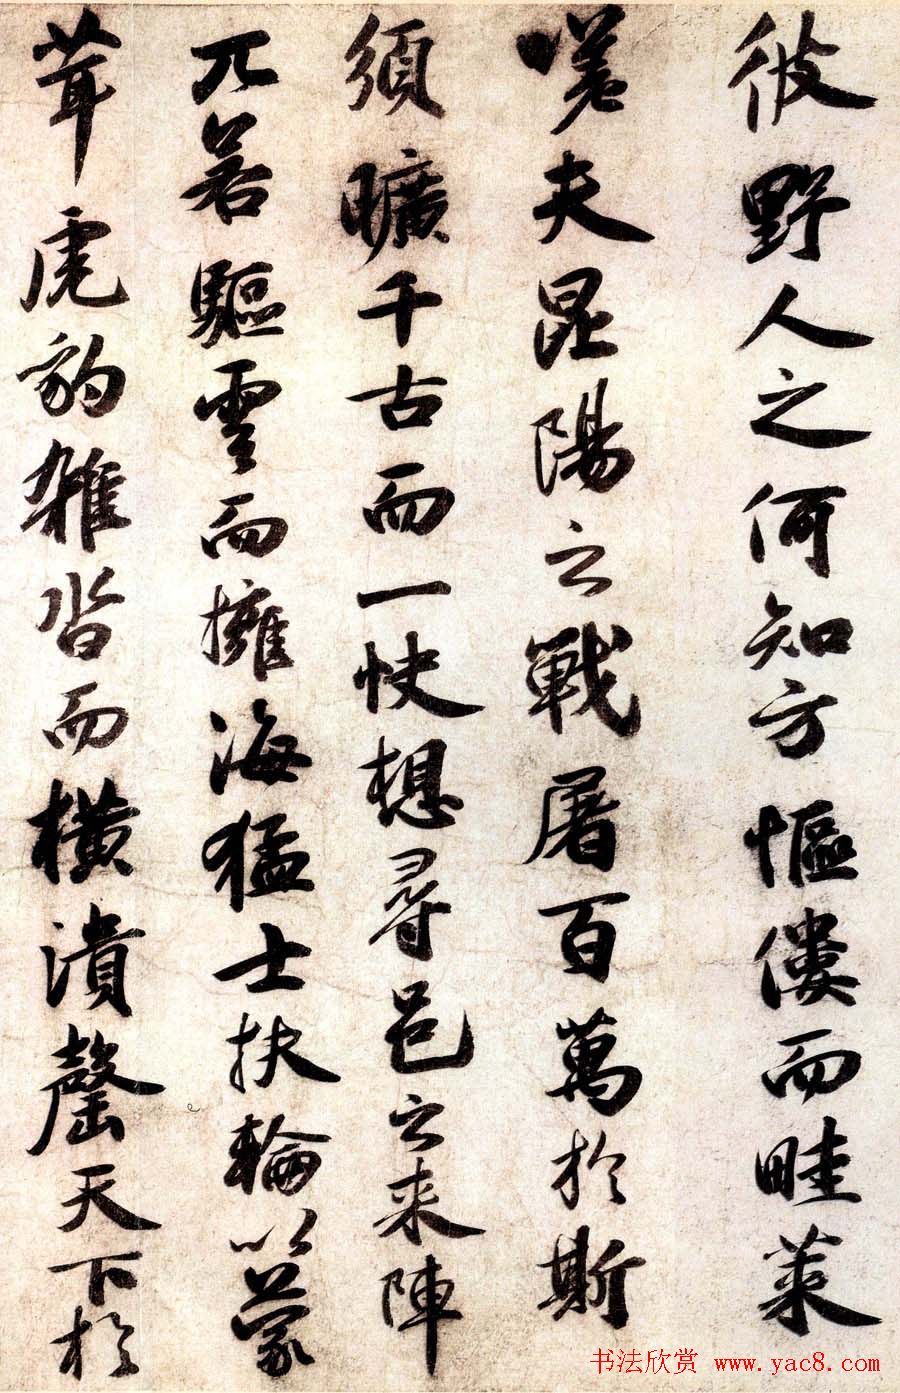 彼野人之何知方傴僂而畦菜
嗟夫昆陽之戰屠百萬於斯
須曠千古而一快想尋邑之来陣
兀若驅雲而擁海猛士扶輪以蒙
茸虎豹雜沓而橫潰罄天下於
书法欣赏 www.yac8.com